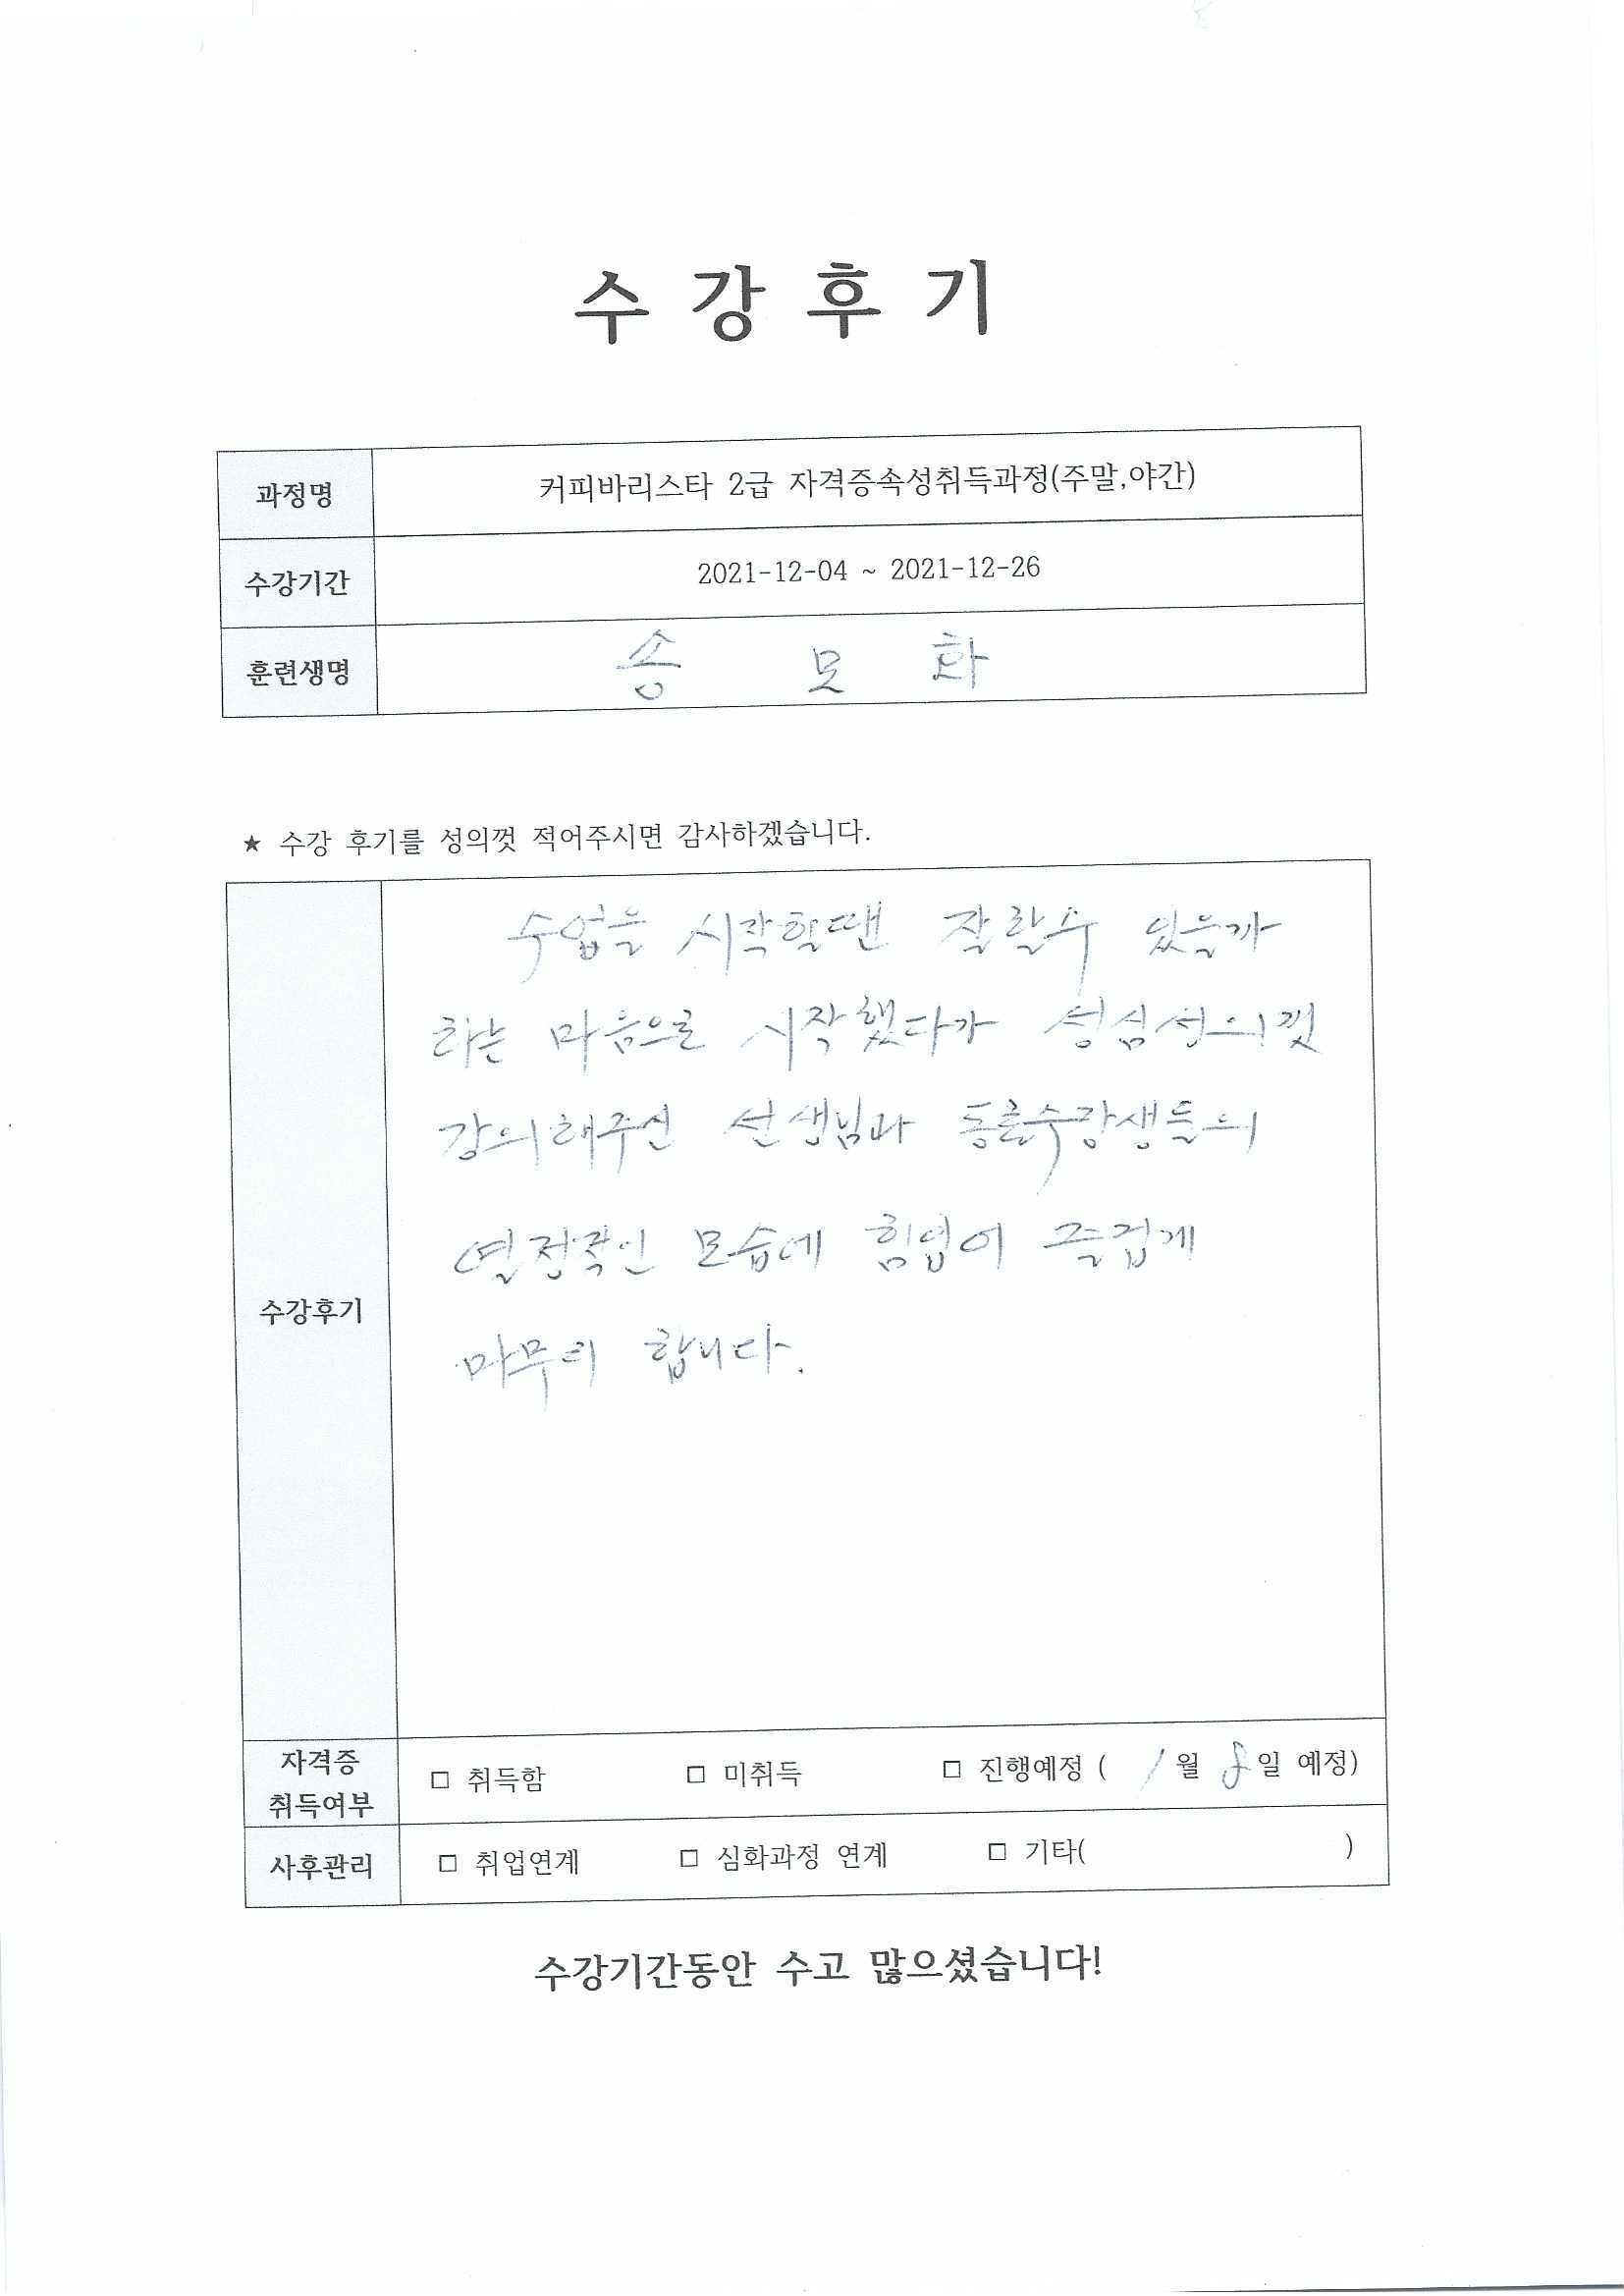 수 강 후 기
과정명 커피바리스타 2급 자격증속성취득과정(주말,야간)
수강기간 2021-12-04 ~ 2021-12-26
훈련생명 송 모 화
★ 수강 후기를 성의껏 적어주시면 감사하겠습니다.
수강후기
수업을 시작할땐 잘할수 있을까
하는 마음으로 시작했다가 성심성의껏
강의해주신 선생님과 동료수강생들의
열정적인 모습에 힘업어 즐겁게
마무리 합니다.
자격증
취득여부
□ 취득함 □ 미취득 □ 진행예정 ( 1월 8일 예정)
사후관리 □ 취업연계 □ 심화과정 연계 □ 기타( )
수강기간동안 수고 많으셨습니다!